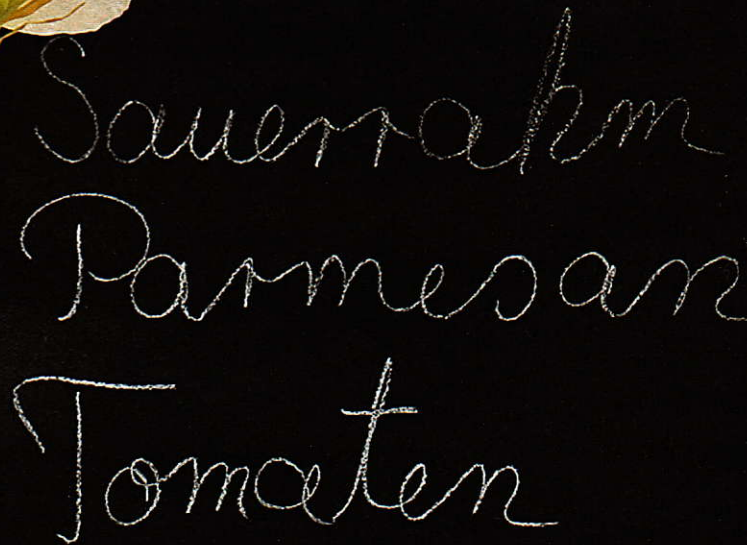 Sauerrahm
Parmesan
Tomaten